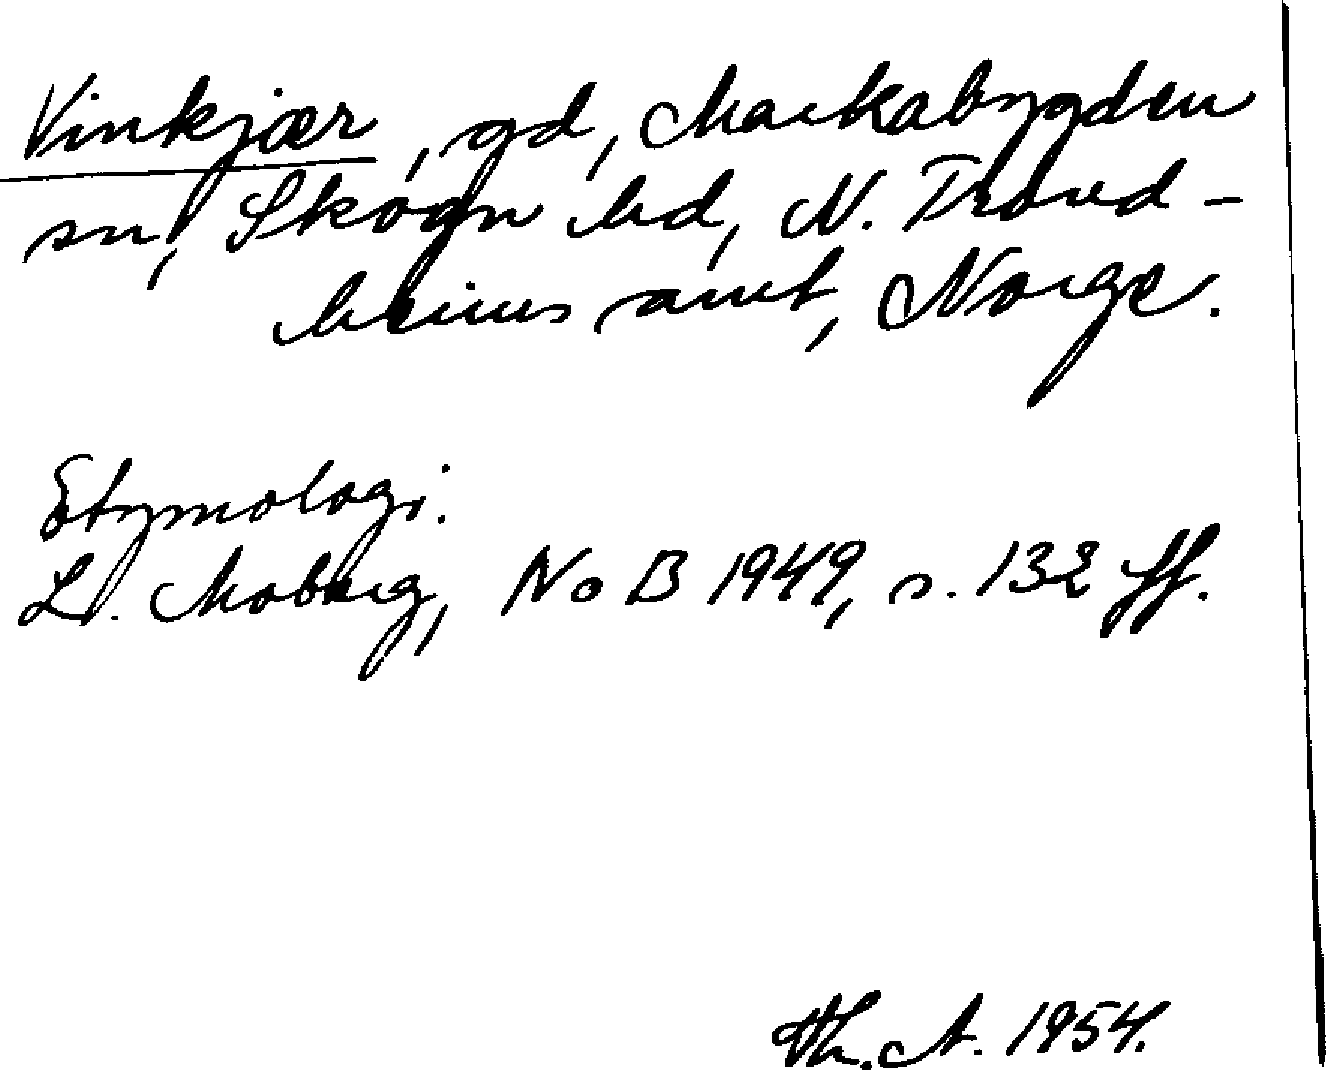 Vinkjær, gd, Markabygden
sn, Skogn hd, N. Trond-
heims amt, Norge.
Etymologi:
L. Moberg, NoB 1949, s. 132 ff.
Th. A. 1954.